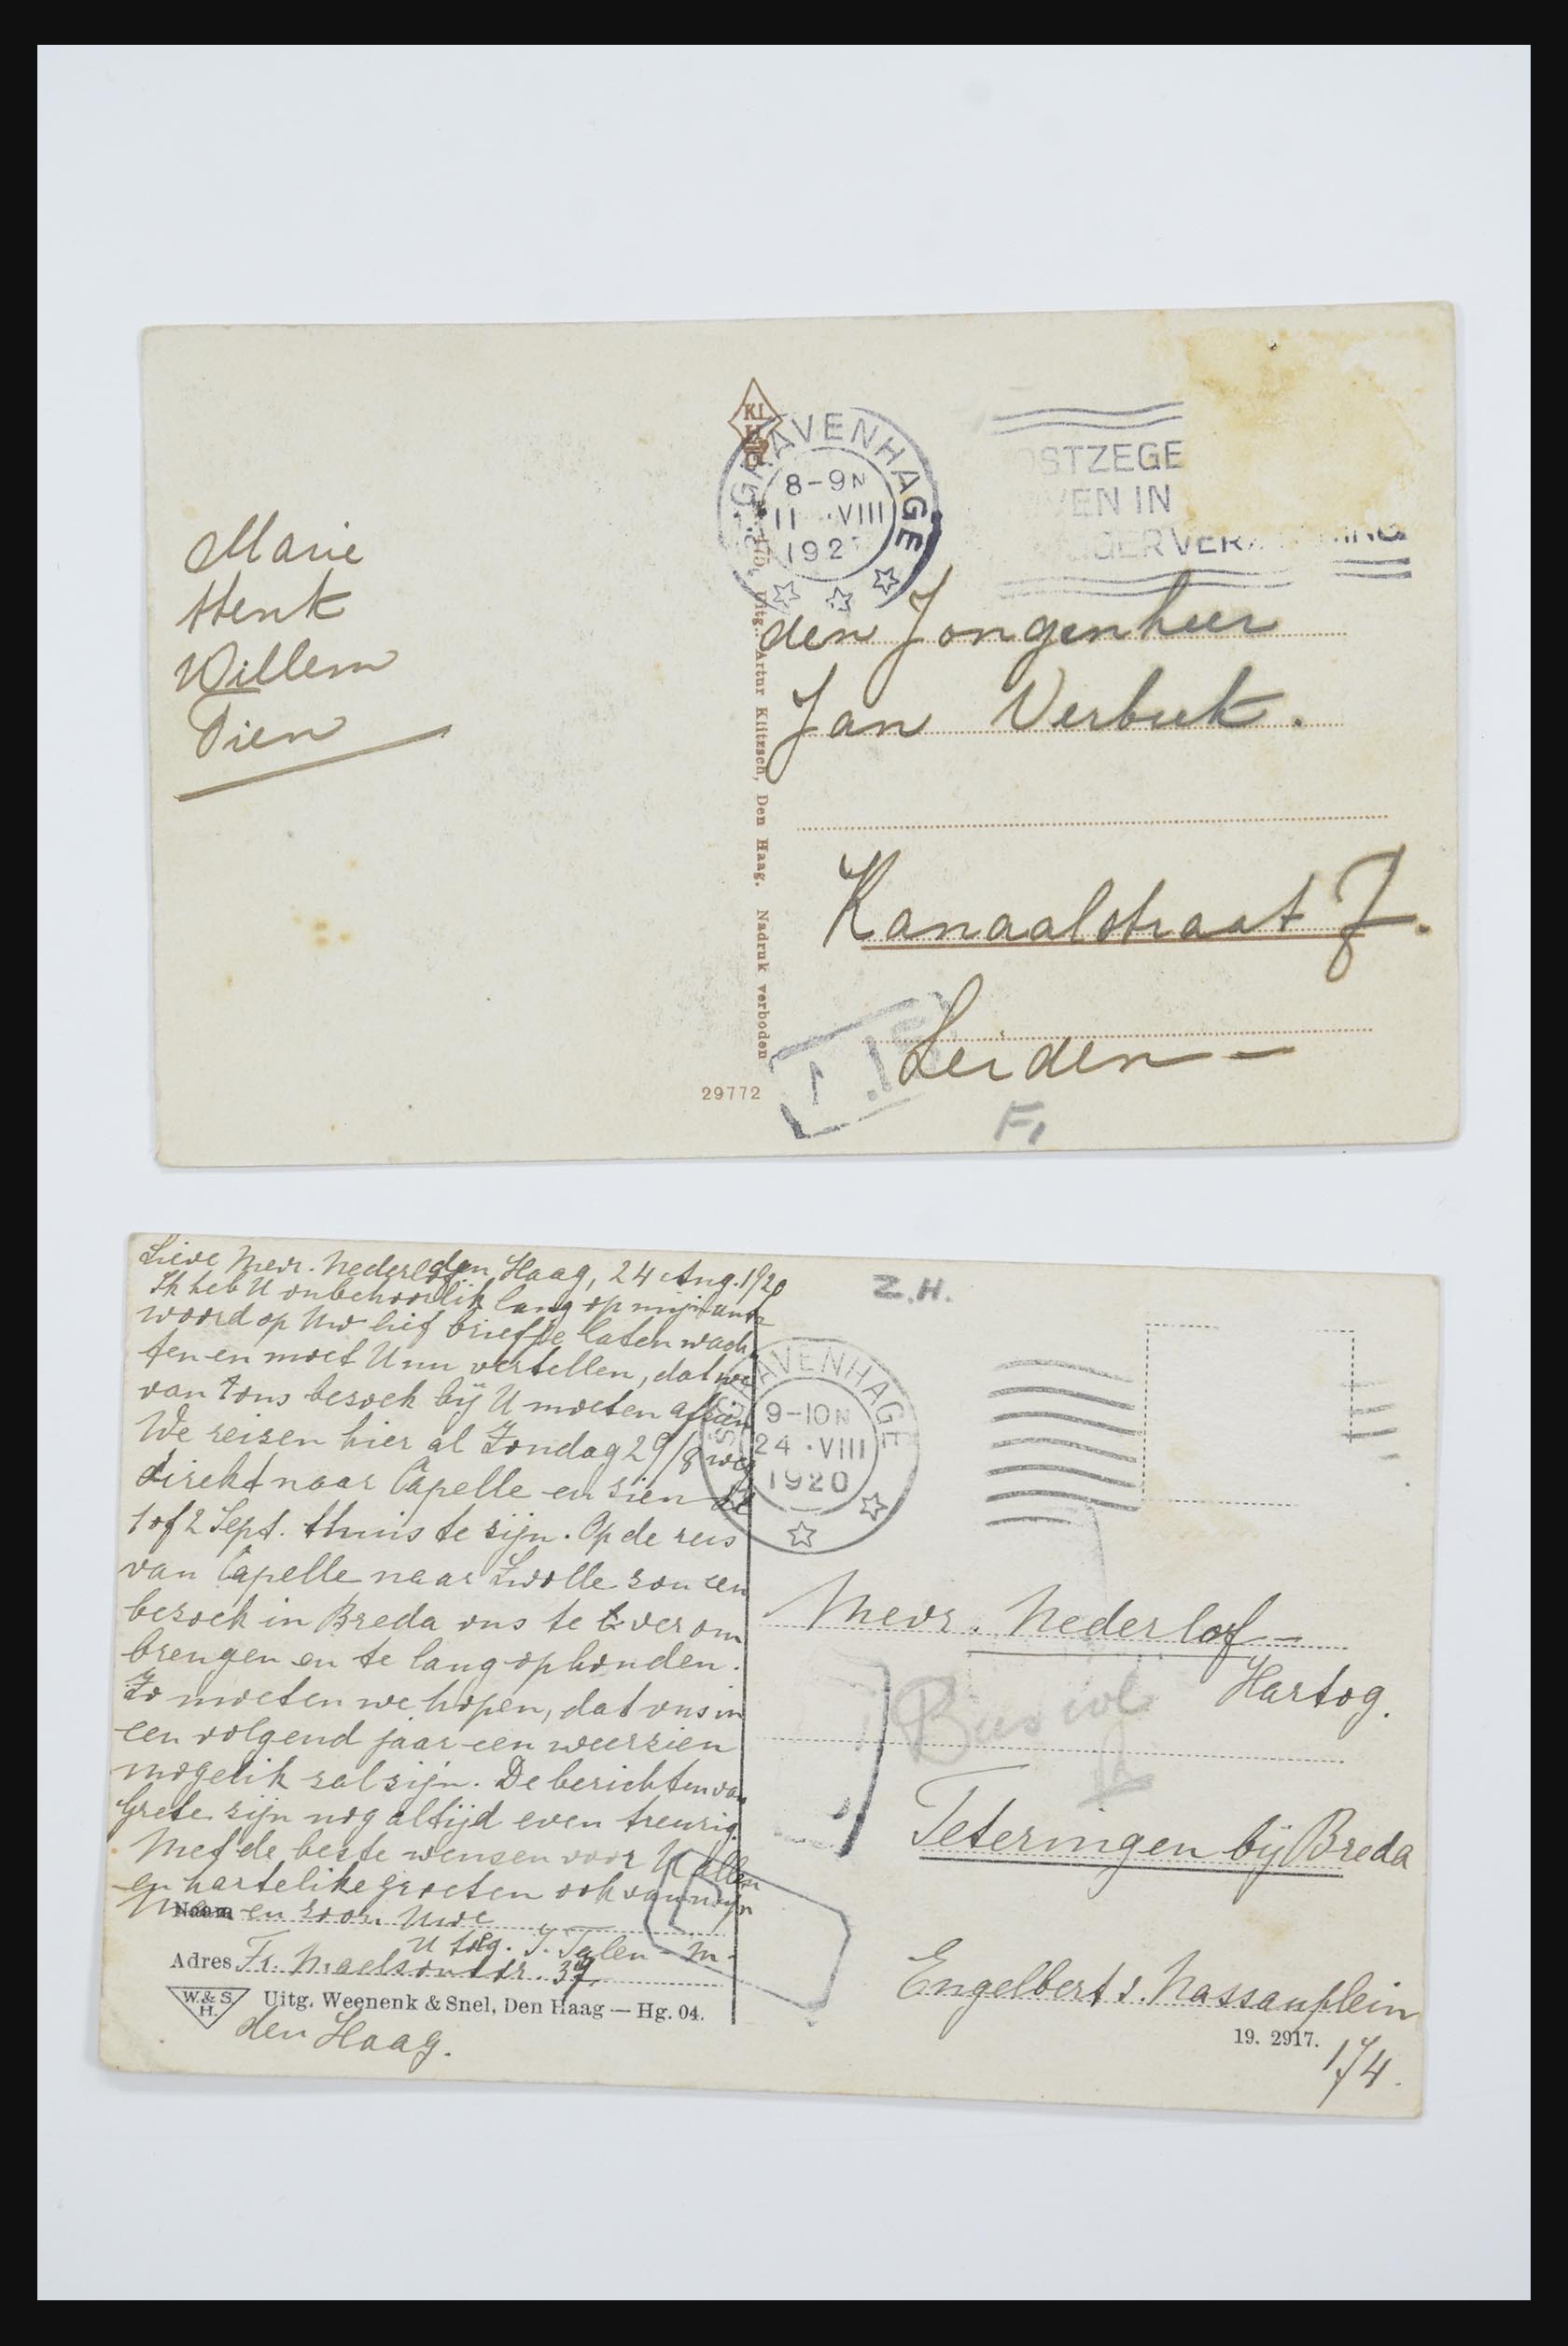 KL
'S GRAVENHAGE
8-9N
11 ·VIII
192
OSTZEGE
VEN IN
Marie
Henk
Willem
Tien
den Jongenheer
Jan Verbeek.
Kanaalstraat 7.
Leiden
Uitg. Artur Klitzsch, Den Haag. Nadruk verboden
29772
T
F,
Z.H.
den Haag, 24 Aug. 1920
Lieve Mevr. Nederlof,
Ik heb U onbehoorlik lang op mijn ant-
woord op Uw lief briefje laten wach-
ten en moet U nu vertellen, dat we
van 't ons bezoek bij U moeten afzien
We reizen hier al Zondag 29/8 weg
direkt naar Capelle en zien de
1 of 2 Sept. thuis te zijn. Op de reis
van Capelle naar Zwolle zou een
bezoek in Breda ons te ver om
brengen en te lang ophouden.
Zo moeten we hopen, dat ons in
een volgend jaar een weerzien
mogelik zal zijn. De berichten van
Grete zijn nog altijd even treurig.
Met de beste wensen voor U allen
en hartelike groeten ook van mijn
Man en zoon Uwe
Naam
U toeg. J. Talen - M-
Adres Fr. Maelsonstr. 37
W.& S.
H.
Uitg. Weenenk & Snel, Den Haag — Hg. 04.
den Haag.
'S GRAVENHAGE
9-10N
24 ·VIII
1920
Mevr. Nederlof-
Hartog.
Teteringen bij Breda
Engelbert v. Nassauplein
19. 2917.
174.